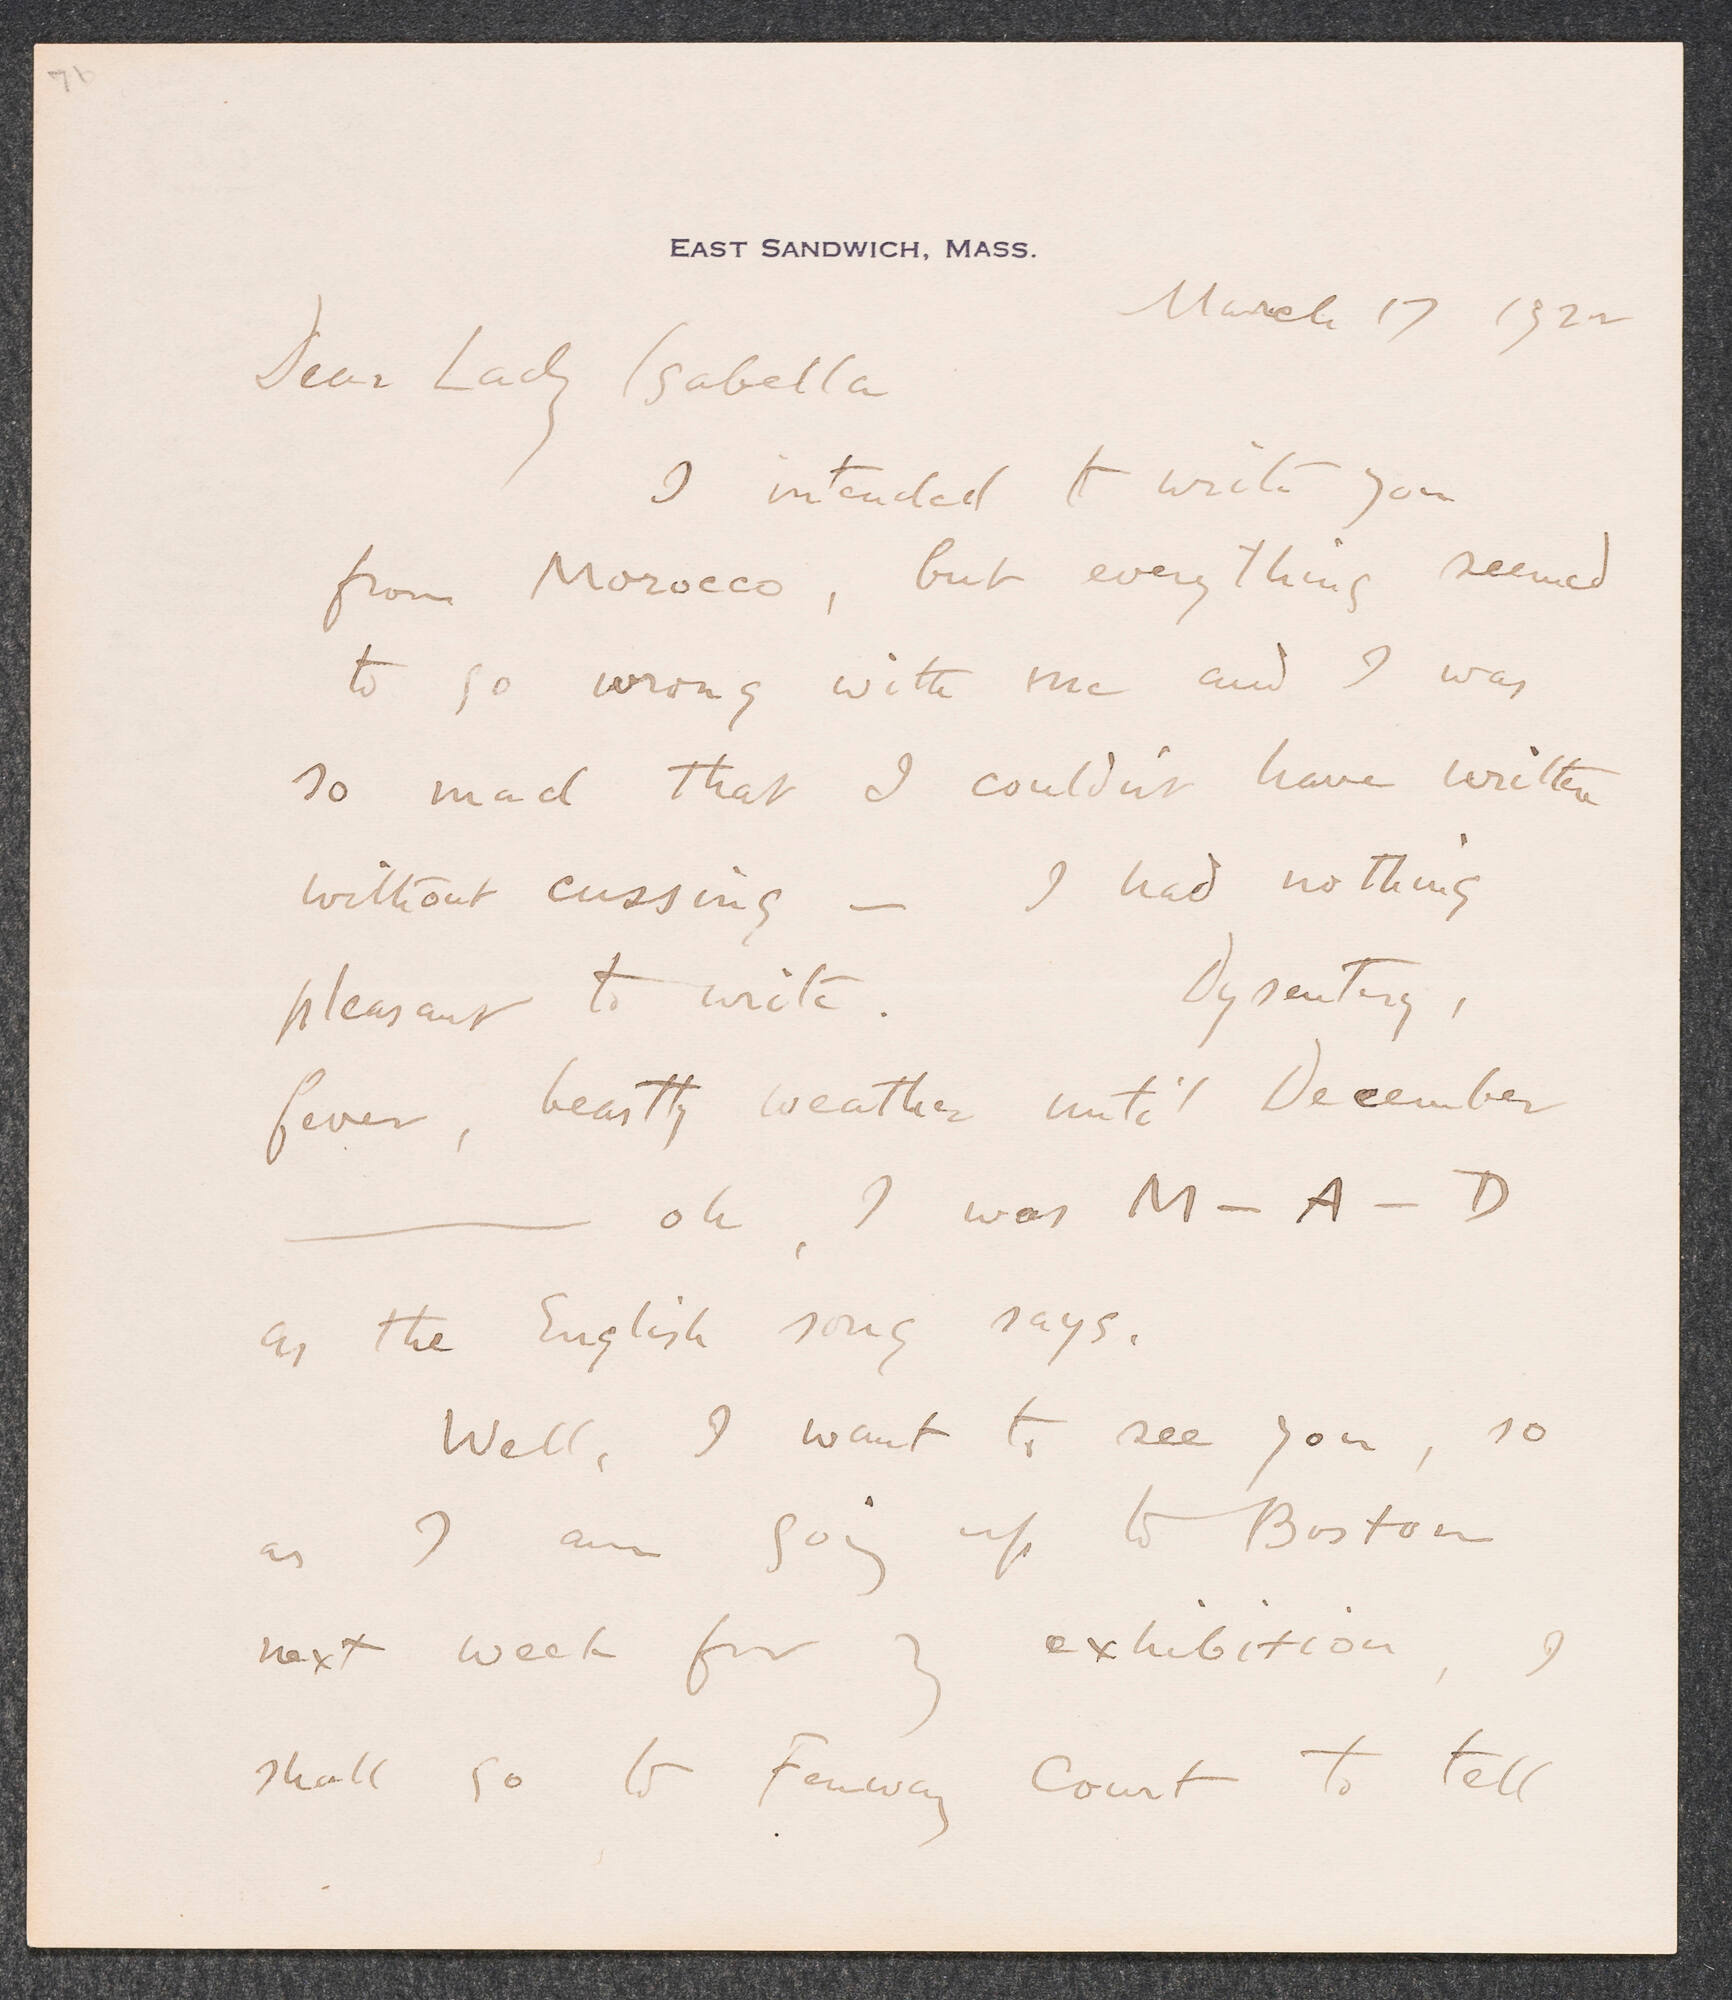 76
EAST SANDWICH, MASS.
March 17 1922
Dear Lady Isabella
I intended to write you
from Morocco, but everything seemed
to go wrong with me and I was
so mad that I couldn't have written
without cussing — I had nothing
pleasant to write. Dysentery,
fever, beastly weather until December
—— oh, I was M - A - D
as the English song says.
Well, I want to see you, so
as I am going up to Boston
next week for my exhibition, I
shall go to Fenway Court to tell